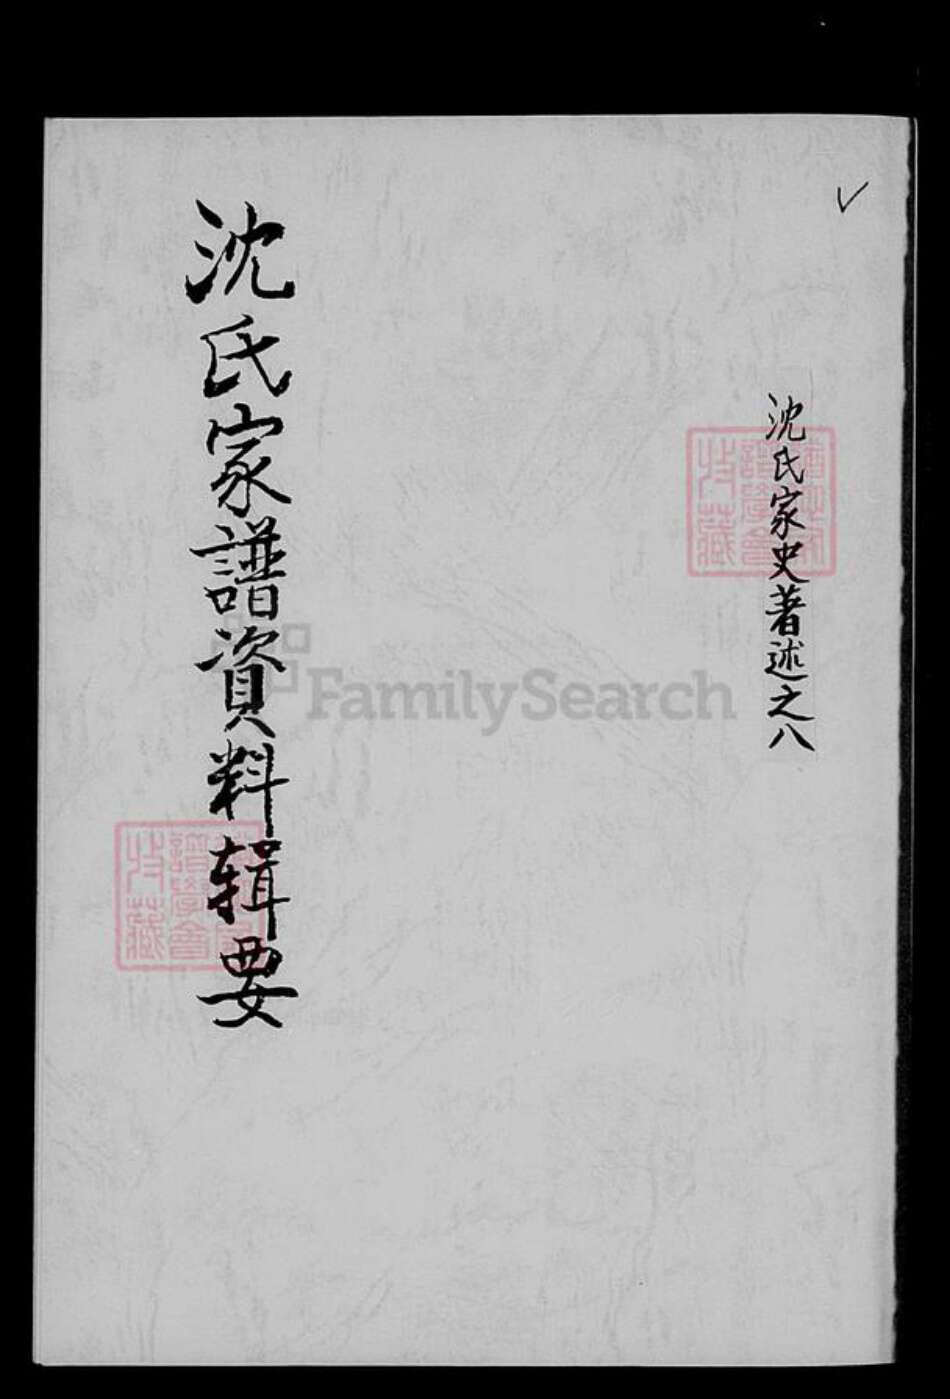 沈氏家史著述之八
沈氏家譜資料辑要
譜學會
收藏
FamilySearch
譜學會
收藏